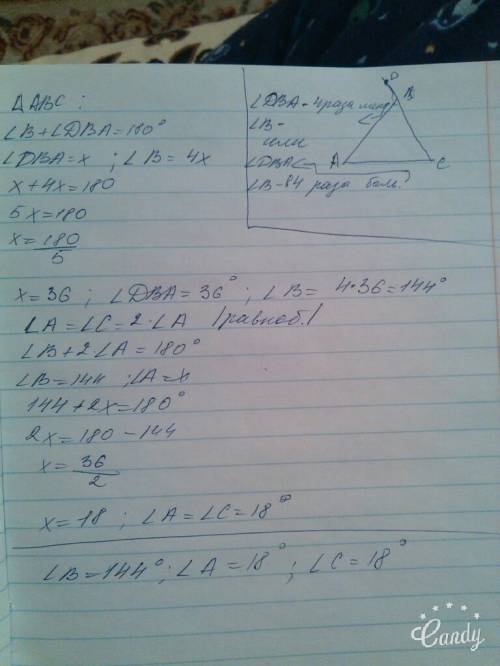 Δ ABC :
∠B+∠DBA=180°
∠DBA=x ; ∠B=4x
x+4x=180
5x=180
x=180/5
D
B
A
C
∠DBA-4раза
∠B-
или
∠DBA
∠B-84 раза боль.
x=36 ; ∠DBA=36° ; ∠B= 4•36=144°
∠A=∠C=2•∠A /равноб./
∠B+2∠A=180°
∠B=144 ; ∠A=x
144+2x=180°
2x=180-144
x=36/2
x=18 ; ∠A=∠C=18°
∠B=144° ; ∠A=18° ; ∠C=18°
Candy